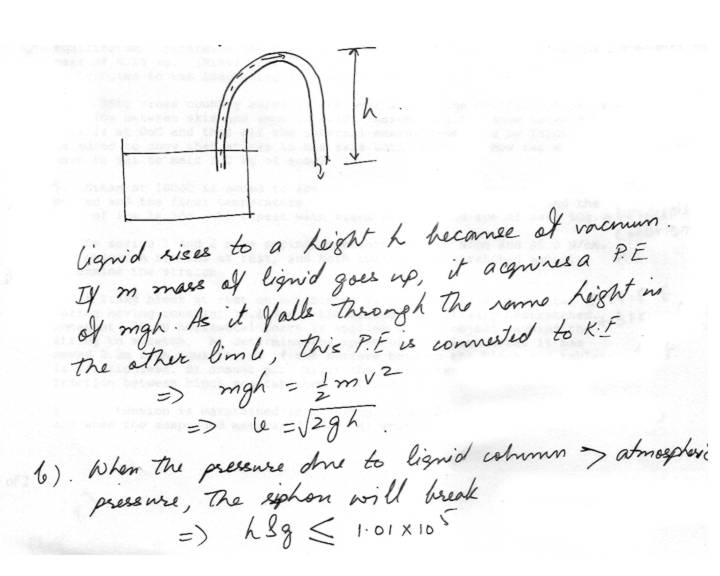 h
Liquid rises to a height h because of vacuum.
If m mass of liquid goes up, it acquires a P.E
of mgh. As it falls through the same height in
the other limb, this P.E is converted to K.E
=> mgh = ½mv²
=> v = √2gh
b). When the pressure due to liquid column > atmospheric
pressure, the siphon will break
=> hρg ≤ 1.01 × 10⁵